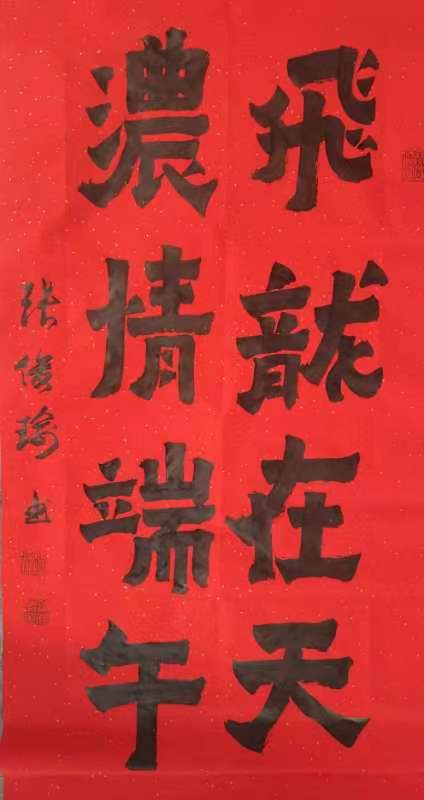 飛龍在天
濃情端午
張俊瑜書